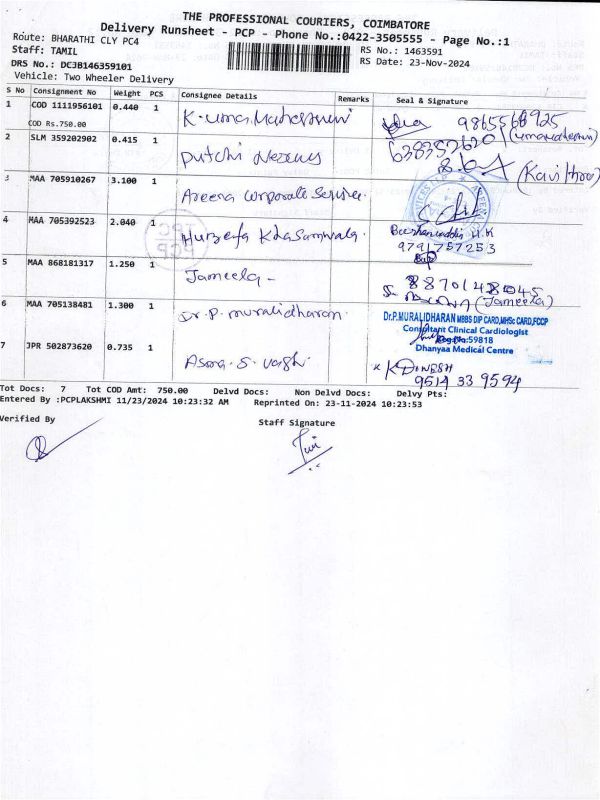 THE PROFESSIONAL COURIERS, COIMBATORE
Delivery Runsheet - PCP - Phone No.:0422-3505555 - Page No.:1
Route: BHARATHI CLY PC4
RS No.: 1463591
Staff: TAMIL
RS Date: 23-Nov-2024
DRS No.: DCJB146359101
Vehicle: Two Wheeler Delivery
S No Consignment No Weight PCS Consignee Details Remarks Seal & Signature
1 COD 1111956101 0.440 1 K. Uma Maheshwari 9865568925
COD Rs.750.00 (Umamaheshwari)
2 SLM 359202902 0.415 1 (Kavitha)
3 MAA 705910267 3.100 1 Areena Corporate Service.
4 MAA 705392523 2.040 1 Huzefa Khasamwala. H.K
PCP
9791757253
5 MAA 868181317 1.250 1 Jameela - (Jameela)
6 MAA 705138481 1.300 1 Dr. P. muralidharan.
Dr.P.MURALIDHARAN MBBS DIP CARD,MHSc CARD,FCCP
Consultant Clinical Cardiologist
Reg.No:59818
Dhanyaa Medical Centre
7 JPR 502873620 0.735 1 K DINESH
9514 33 9594
Tot Docs: 7 Tot COD Amt: 750.00 Delvd Docs: Non Delvd Docs: Delvy Pts:
Entered By :PCPLAKSHMI 11/23/2024 10:23:32 AM Reprinted On: 23-11-2024 10:23:53
Verified By
Staff Signature